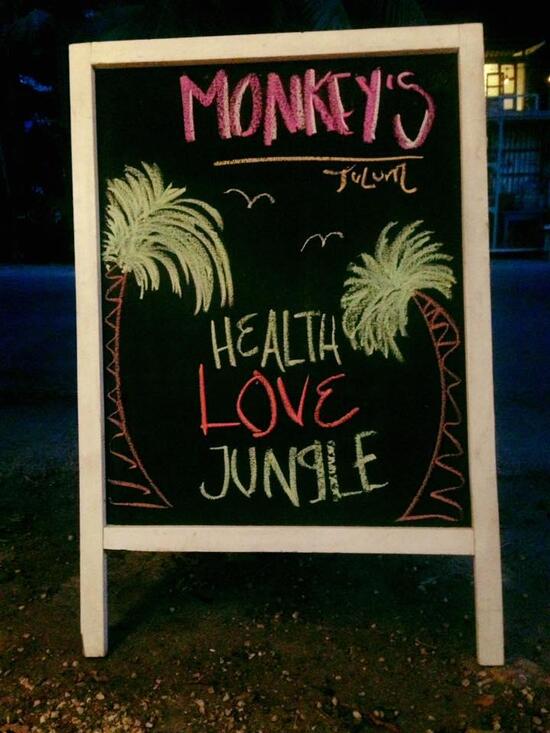 MONKEY'S
TULUM
HEALTH
LOVE
JUNGLE